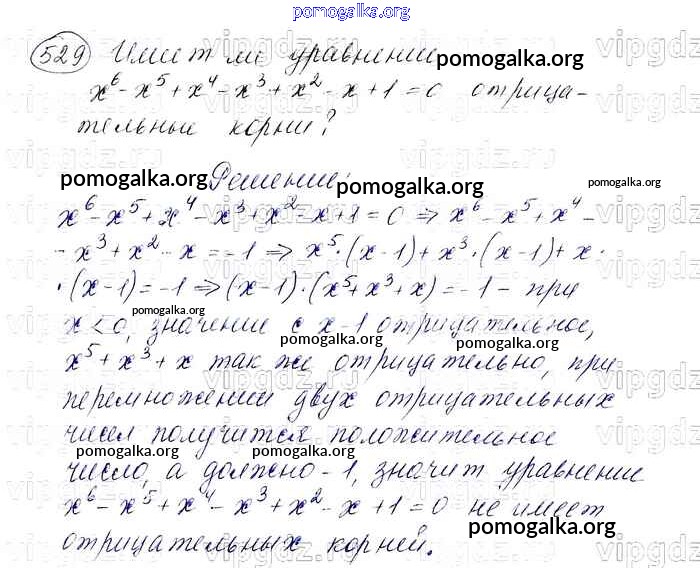 pomogalka.org
529 Имеет ли уравнение
pomogalka.org
x⁶ - x⁵ + x⁴ - x³ + x² - x + 1 = 0 отрица-
тельные корни?
Решение:
pomogalka.org
pomogalka.org
pomogalka.org
x⁶ - x⁵ + x⁴ - x³ + x² - x + 1 = 0 ⇒ x⁶ - x⁵ + x⁴ -
- x³ + x² - x = -1 ⇒ x⁵·(x-1) + x³·(x-1) + x·
·(x-1) = -1 ⇒ (x-1)·(x⁵+x³+x) = -1 - при
pomogalka.org
x < 0, значение с x-1 отрицательное,
pomogalka.org
pomogalka.org
x⁵ + x³ + x так же отрицательно, при
перемножении двух отрицательных
чисел получится положительное
pomogalka.org
pomogalka.org
число, а должно -1, значит уравнение
x⁶ - x⁵ + x⁴ - x³ + x² - x + 1 = 0 не имеет
pomogalka.org
отрицательных корней.